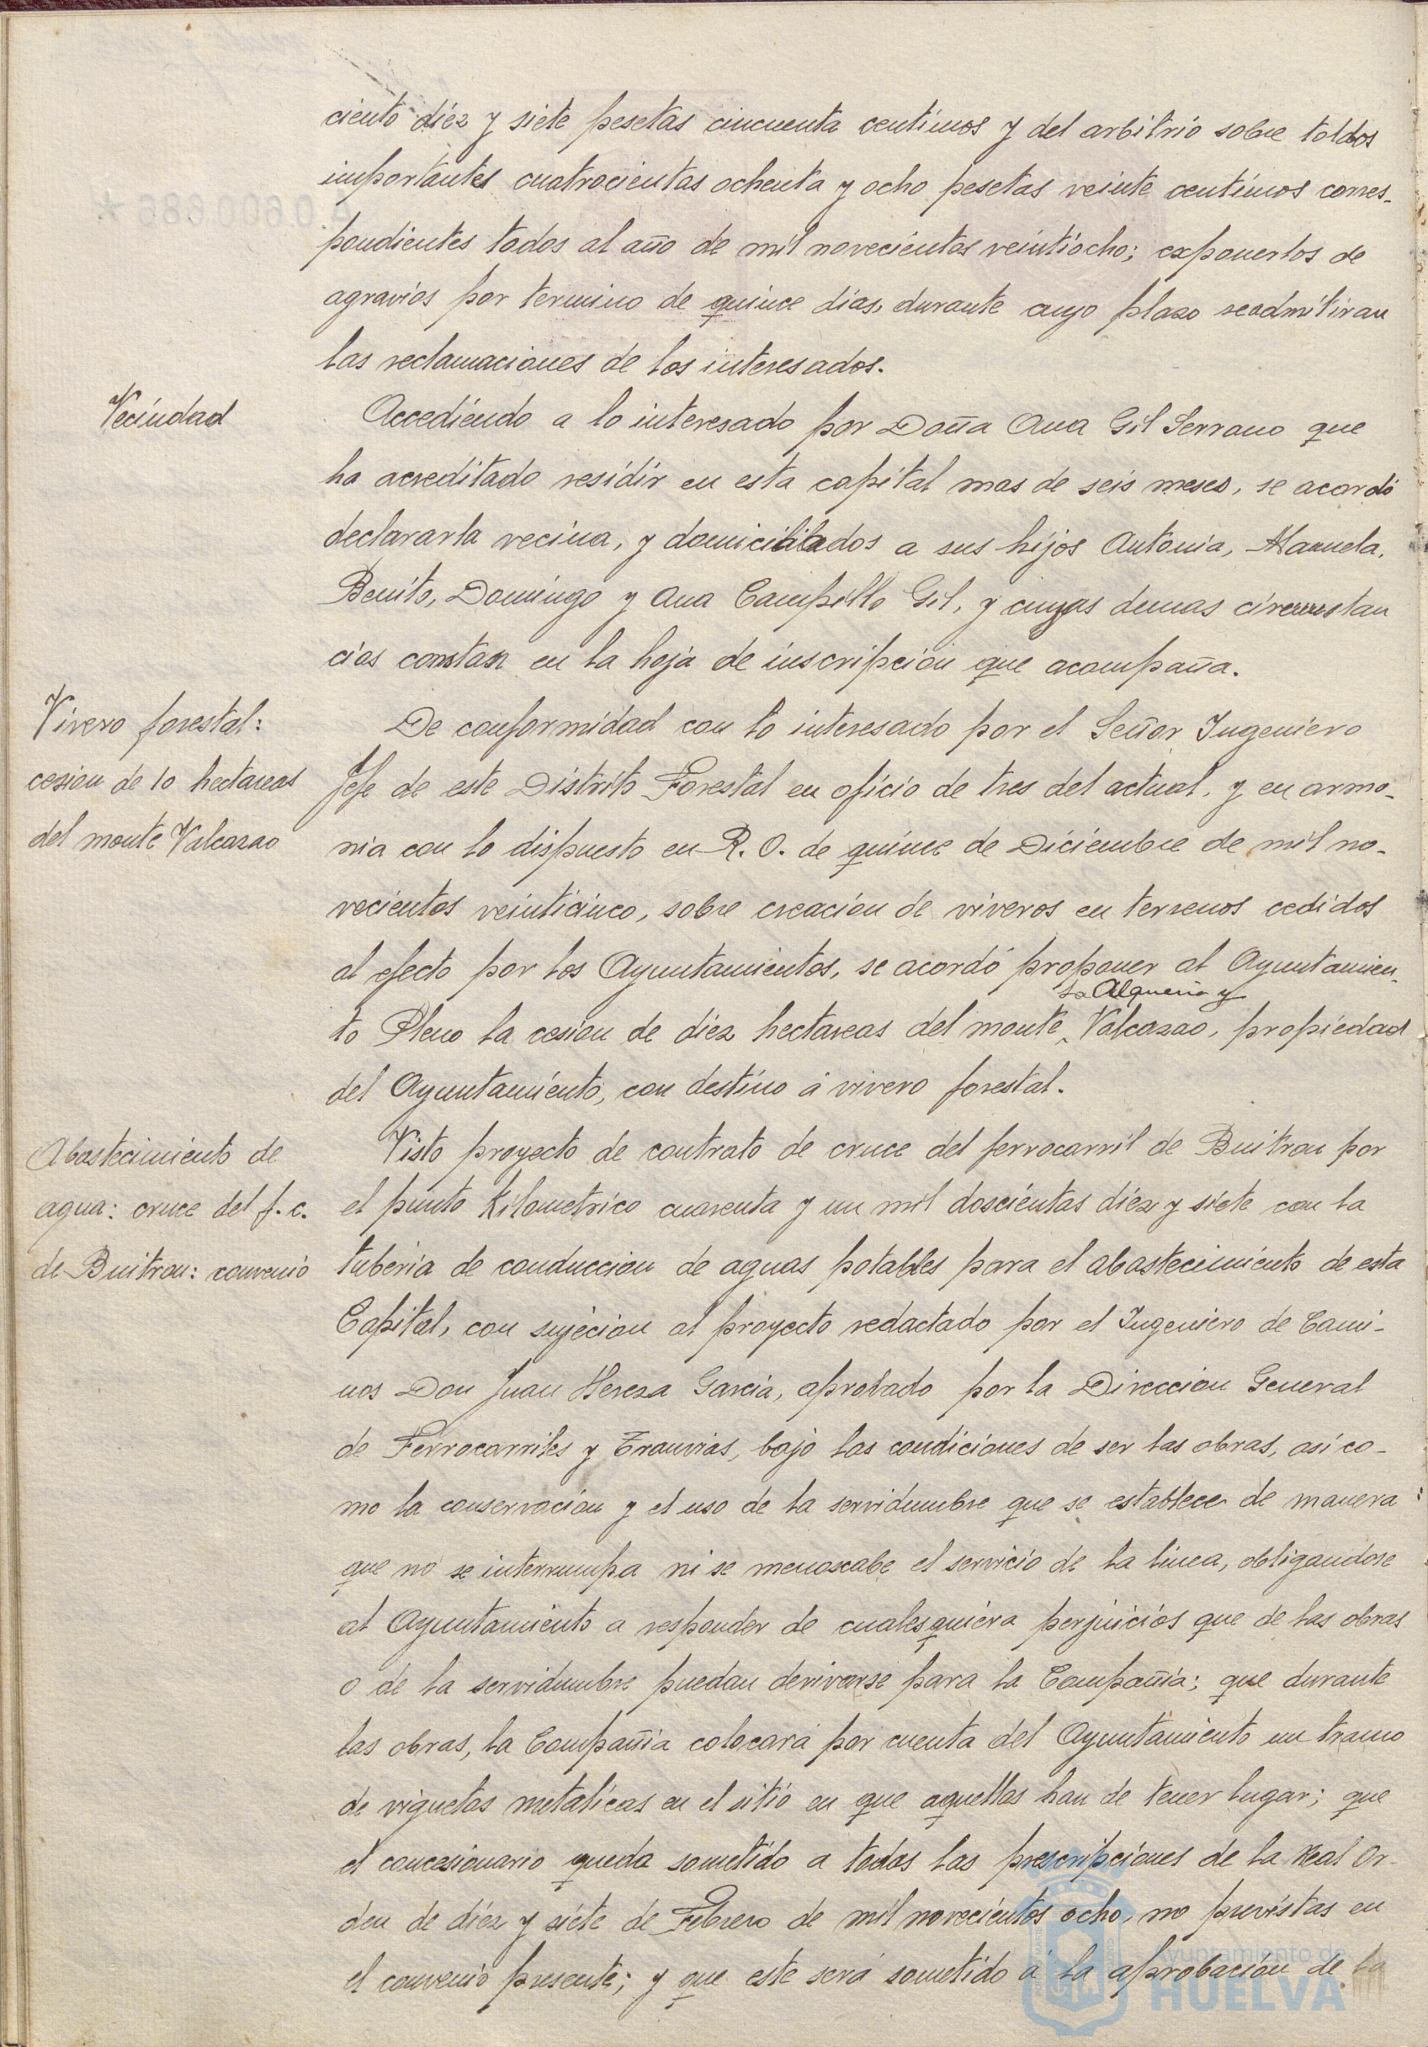 ciento diéz y siete pesetas cincuenta centimos y del arbitrio sobre toldos
importantes cuatrocientas ochenta y ocho pesetas veinte centimos corres-
pondientes todos al año de mil novecientos veintiocho; exponerlos de
agravios por termino de quince dias, durante cuyo plazo se admitiran
las reclamaciones de los interesados.
Vecindad
Accediendo a lo interesado por Doña Ana Gil Serrano que
ha acreditado residir en esta capital mas de seis meses, se acordó
declararla vecina, y domiciliados a sus hijos Antonia, Manuela,
Benito, Domingo y Ana Campillo Gil, y cuyas demas circunstan
cias constan en la hoja de inscripcion que acompaña.
Vivero forestal:
cesion de 10 hectareas
del monte Valcazao
De conformidad con lo interesado por el Señor Ingeniero
Jefe de este Distrito Forestal en oficio de tres del actual, y en armo-
nia con lo dispuesto en R. O. de quince de Diciembre de mil no-
vecientos veinticinco, sobre creacion de viveros en terrenos cedidos
al efecto por los Ayuntamientos, se acordó proponer al Ayuntamien-
la Alqueria y
to Pleno la cesion de diéz hectareas del monte Valcazao, propiedad
del Ayuntamiento, con destino á vivero forestal.
Abastecimiento de
agua: cruce del f. c.
de Buitron: convenio
Visto proyecto de contrato de cruce del ferrocarril de Buitron por
el punto kilometrico cuarenta y un mil doscientas diéz y siete con la
tuberia de conduccion de aguas potables para el abastecimiento de esta
Capital, con sujecion al proyecto redactado por el Ingeniero de Cami-
nos Don Juan Hereza Garcia, aprobado por la Direccion General
de Ferrocarriles y Tranvias, bajo las condiciones de ser las obras, asi co-
mo la conservacion y el uso de la servidumbre que se establece de manera
que no se interrumpa ni se menoscabe el servicio de la linea, obligandose
al Ayuntamiento a responder de cualesquiera perjuicios que de las obras
o de la servidumbre puedan derivarse para la Compañia; que durante
las obras, la Compañia colocará por cuenta del Ayuntamiento un tramo
de viguetas metalicas en el sitio en que aquellas han de tener lugar; que
el concesionario queda sometido a todas las prescripciones de la Real Or-
den de diéz y siete de Febrero de mil novecientos ocho, no previstas en
el convenio presente; y que este será sometido á la aprobacion de la
Ayuntamiento de
HUELVA